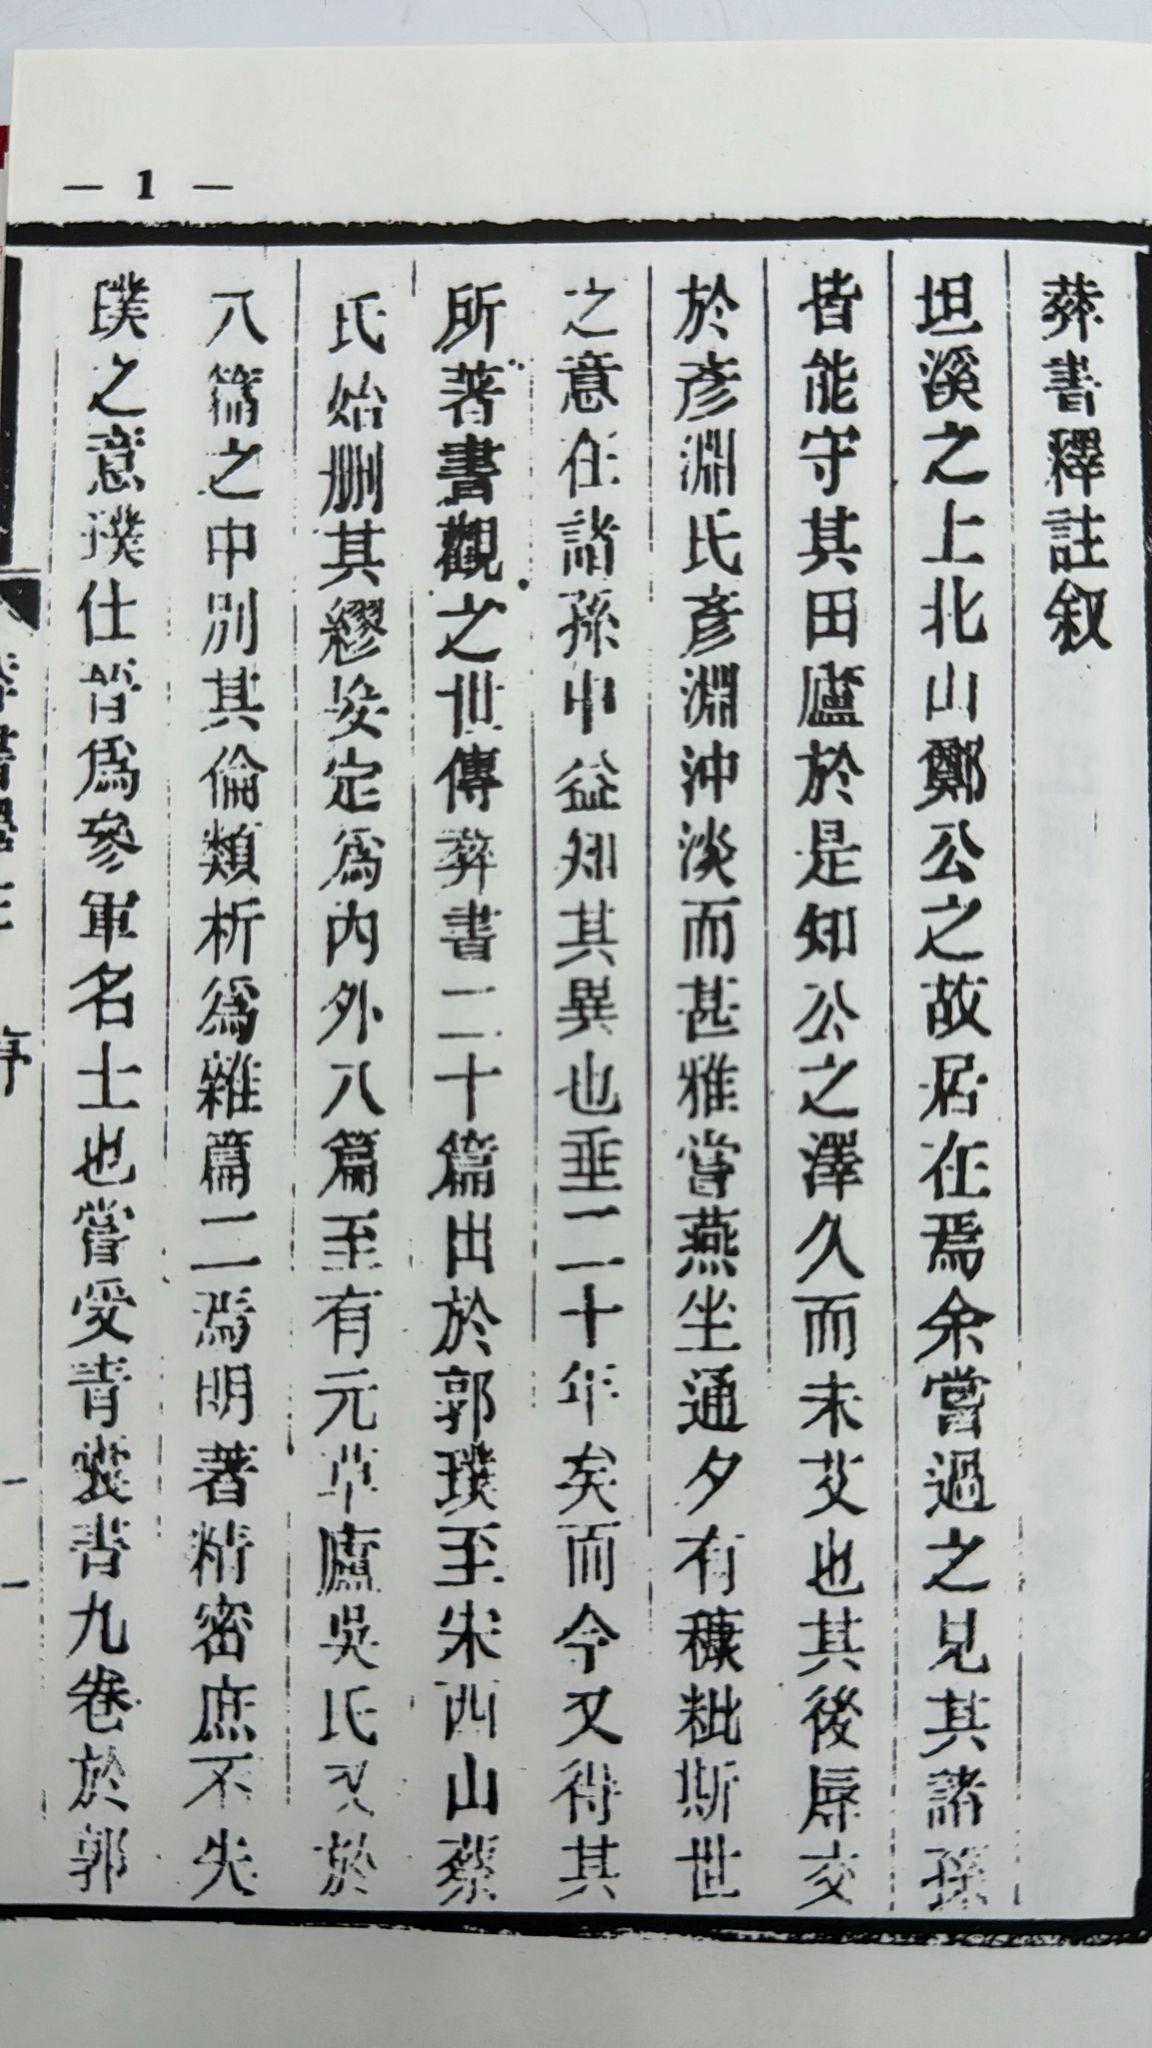 — 1 —
葬書釋註叙
坦溪之上北山鄭公之故居在焉余嘗過之見其諸孫
皆能守其田廬於是知公之澤久而未艾也其後辱交
於彥淵氏彥淵沖淡而甚雅嘗燕坐通夕有糠粃斯世
之意在諸孫中益知其異也垂二十年矣而今又得其
所著書觀之世傳葬書二十篇出於郭璞至宋西山蔡
氏始刪其繆妄定爲內外八篇至有元草廬吳氏又於
八篇之中別其倫類析爲雜篇二焉明著精密庶不失
璞之意璞仕晉爲參軍名士也嘗受青囊書九卷於郭
序